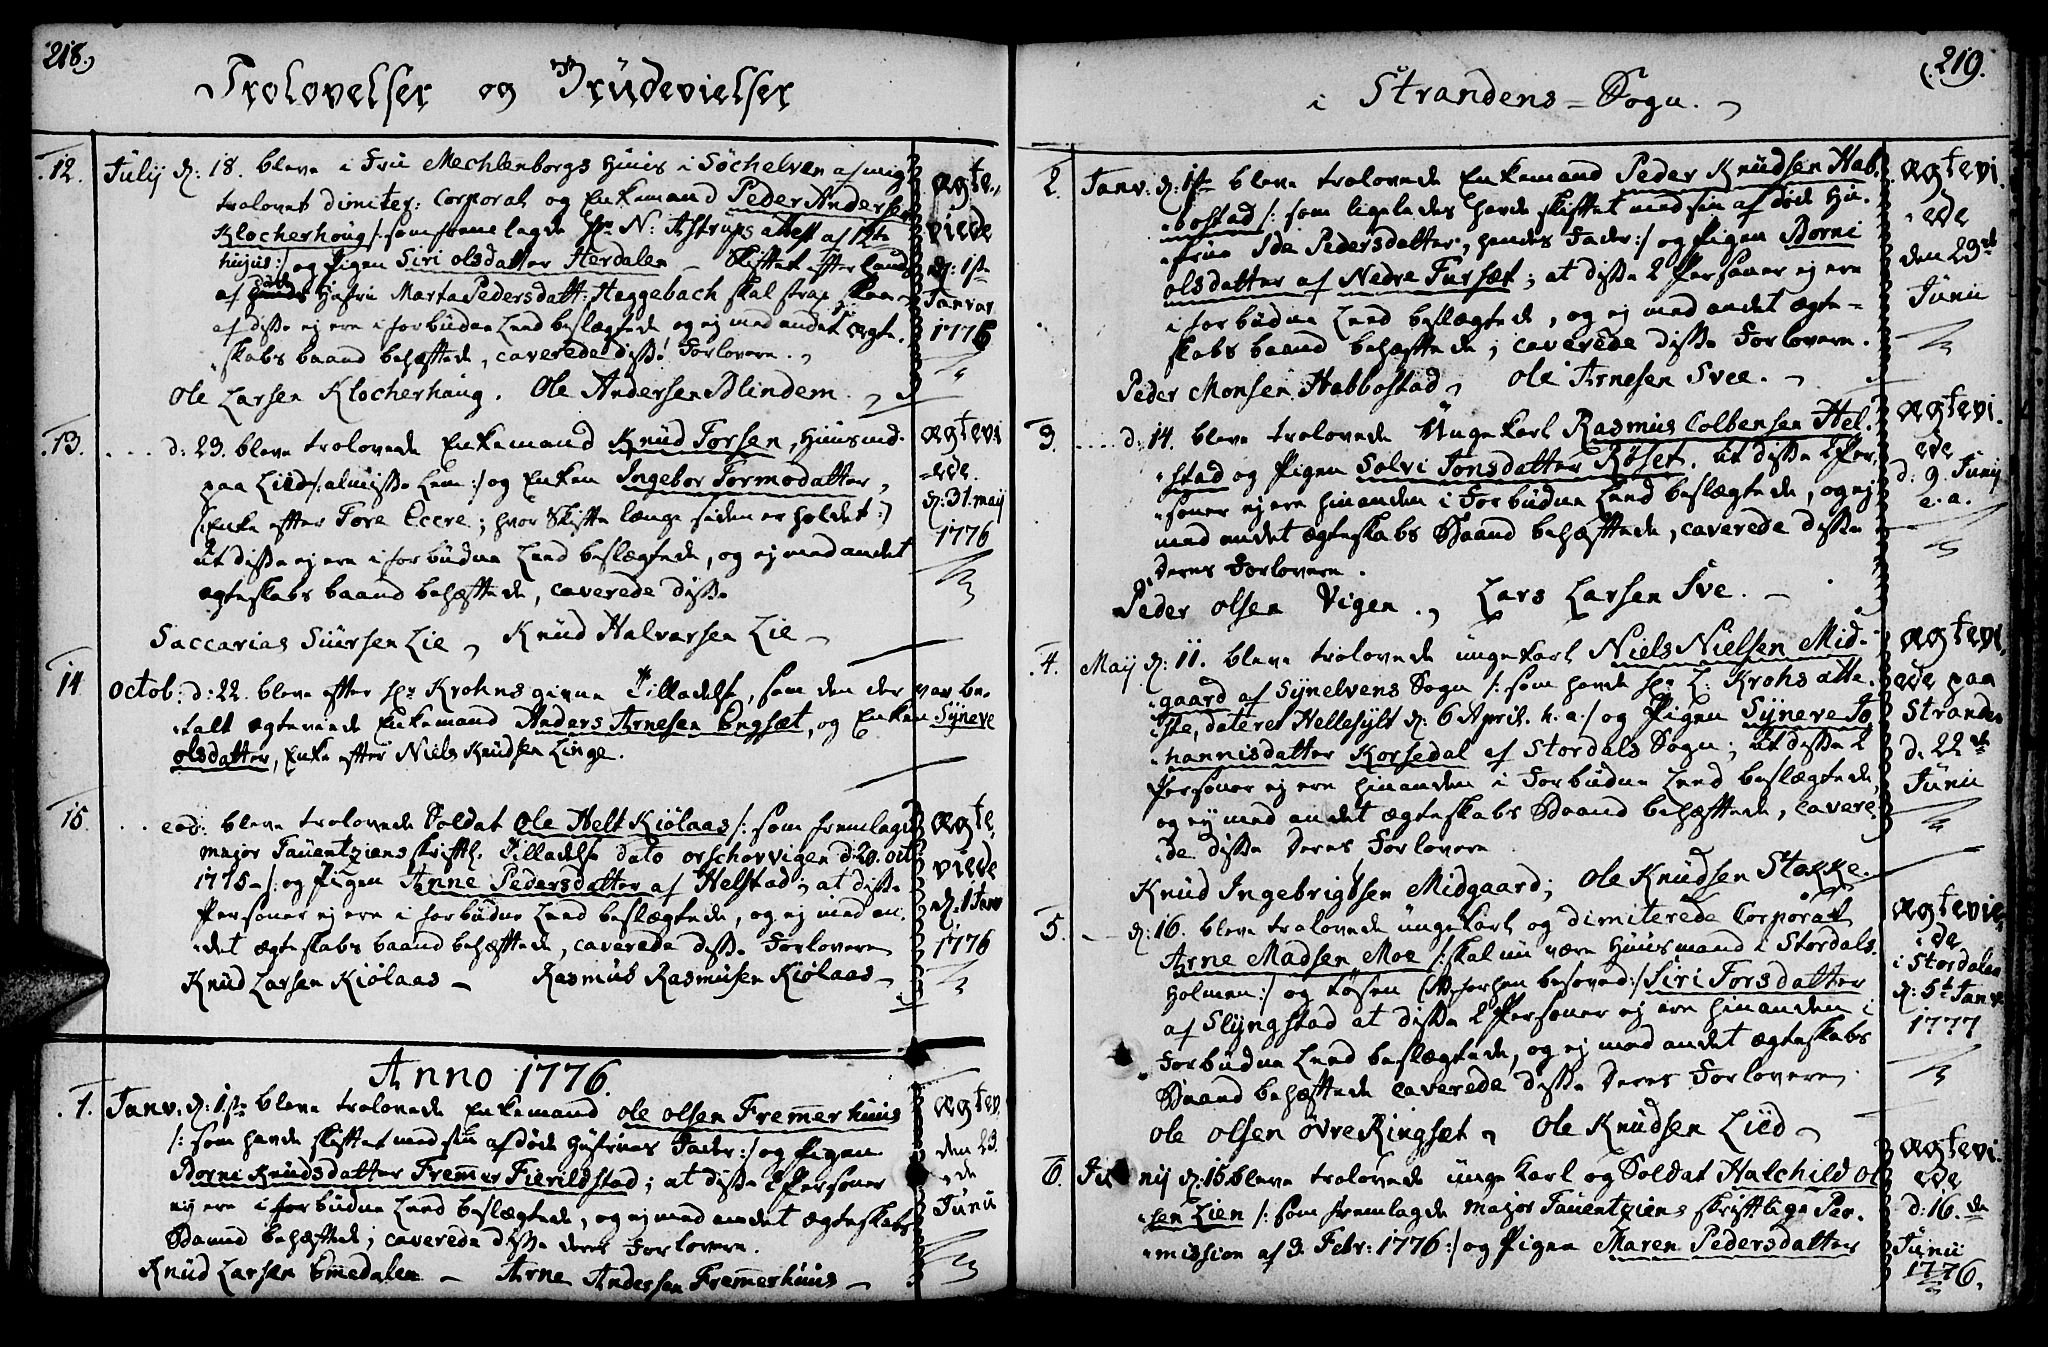 218.)
Trolovelser og Brudevielser
12. Julij d: 18. bleve i Fru Mechlenborgs Huus i Söchelven af mig
trolovet dimiter: Corporal og Enkemand Peder Andersen
Klocherhoug /: som fremlagde Hr. N: Astrups attest af 12te
hujus :/ og Pigen Siri olsdatter Herdalen
af Hustru Marta Pedersdatt: Heggebach skal strax skee
af disse ej ere i forbudne Leed beslægtede og ej med andet ægte-
skabs baand behæftede, caverede disse Forlovere.
Ole Larsen Klocherhaug. Ole Andersen Blindem.
Ægte-
viede
d: 1ste
Januar
1776
13. .... d: 23. bleve trolovede Enkemand Knud Torsen, Huusmd.
paa Liid /: almisse Lem :/ og Enken Ingebor Tormodatter,
/: Enke efter Tore Eccre; hvor Skifte længe siden er holdet :/
At disse ej ere i forbudne Leed beslægtede, og ej med andet
ægteskabs baand behæftede, caverede disse
Saccarias Siursen Lie, Knud Halvorsen Lie
Ægtevi
ede
d: 31. maij
1776
14 Octob: d: 22. bleve efter Hr. Krohns givne Tilladelse, som den der var be-
talt ægteviede Enkemand Anders Arnesen Engsæt, og Enken Syneve
olsdatter, Enke efter Niels Knudsen Linge.
15. ... eod: bleve trolovede Soldat Ole Helt Kiölaas /: som fremlagde
major Tauentziens skriftl. Tilladelse dato Orschorvigen d: 20. oct
1775 :/ og Pigen Anne Pedersdatter af Helstad, at disse
Personer ej ere i forbudne Leed beslægtede, og ej med an-
det ægteskabs baand behæftede, caverede disse Forlovere
Knud Larsen Kiölaas Rasmus Rasmusen Kiölaas
Ægte-
viede
d: 1 Janv
1776
Anno 1776.
1. Janv. d: 1ste bleve trolovede Enkemand ole olsen Fremmerhuus
/: som havde skiftet med sin afdöde Hustrues Fader :/ og Pigen
Borni Knudsdatter Fremmer Fierildstad; at disse 2 Personer
ej ere i forbudne Leed beslægtede, og ej med andet ægteskabs
Baand behæftede; caverede disse deres Forlovere.
Knud Larsen Emedalen Arne Andersen Fremmerhuus
Ægtev.
den 23
de
Junii
219.
i Strandens Sogn.
2. Janv. d: 1ste bleve trolovede Enkemand Peder Knudsen Hab-
bostad /: som ligeledes havde skiftet med sin afdöde Hu-
strue Ide Pedersdatter, hendes Fader :/ og Pigen Borni
olsdatter af Nedre Furset; at disse 2 Personer ej ere
i forbudne Leed beslægtede, og ej med andet ægte-
skabs baand behæftede; caverede disse Forlovere.
Peder Monsen Habbostad, Ole Arnesen Svee.
Ægtevi
ede
den 23de
Junii
3. .... d: 14. bleve trolovede Ungekarl Rasmus Colbensen Hel-
stad og Pigen Solvi Jonsdatter Röset. At disse 2 Per-
soner ej ere hinanden i Forbudne Leed beslægtede, og ej
med andet ægteskabs Baand behæftede, caverede disse
Deres Forlovere.
Peder olsen Vigen. Lars Larsen Sve.
Ægtevi.
ede
d: 9 Junij
e. a.
4. Maij d: 11. bleve trolovede ungekarl Niels Nielsen Mid-
gaard af Synelvens Sogn /: som havde Hr. L: Krohs atte-
ste, dateret Hellesylt d: 6 April. h. a :/ og Pigen Syneve Jo-
hannisdatter Korsedal af Stordals Sogn; At disse 2
Personer ej ere hinanden i Forbudne Leed beslægtede,
og ej med andet Ægteskabs Baand behæftede, cavere-
de disse Deres Forlovere
Knud Ingebrigtsen Midgaard; Ole Knudsen Stakke.
Ægtevi
ede paa
Stranden
d: 22de
Junii
5. d: 16. bleve trolovede ungekarl og dimiterede Corporal
Arne Madsen Moe /: skal nu være Huusmand i Stordals
Holmen :/ og Tösen /: forhen besoved :/ Siri Torsdatter
af Slyngstad at disse 2 Personer ej ere hinanden i
Forbudne Leed beslægtede, og ej med andet ægteskabs
Baand behæftede caverede disse Deres Forlovere
Ole olsen övre Ringset, Ole Knudsen Liid
Ægtevie-
de
i Stordalen
d: 5te Janv
1777
6. Junij d: 15. bleve trolovede ungekarl og Soldat Halchild Ol-
sen Lien /: som fremlagde major Tauentziens skriftlige Per-
mission af 3. Febr: 1776 :/ og Pigen Maren Pedersdatter
Ægtevi.
ede
d: 16. de
Junii
1776.